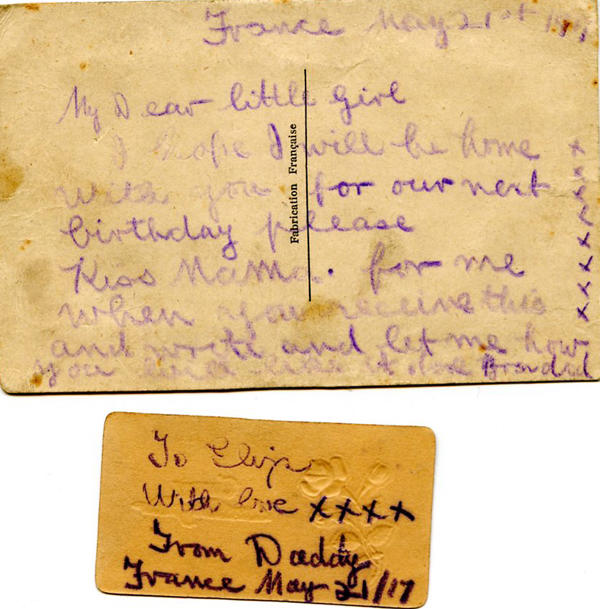 France May 21st
My Dear little Girl
I hope I will be home
with you for our next
birthday please
Kiss Mama. for me
when you receive this
and write and let me how
you
x x x x x x x
Fabrication Française
To
With love xxxx
From Daddy
France May 21/17